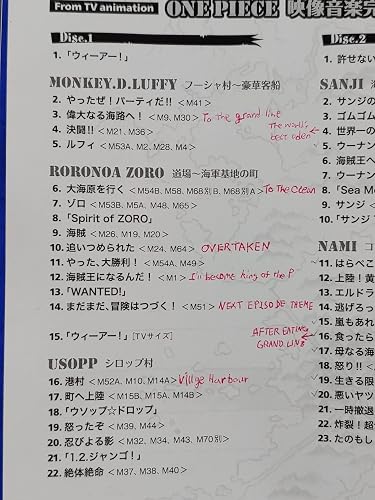 From TV animation ONE PIECE 映像音楽完
Disc.1
1. 「ウィーアー!」
MONKEY.D.LUFFY フーシャ村〜豪華客船
2. やったぜ!パーティだ!! <M41>
3. 偉大なる海路へ! <M9、M30> To the grand line
4. 決闘!! <M21、M36>
5. ルフィ <M53A、M2、M28、M4>
RORONOA ZORO 道場〜海軍基地の町
6. 大海原を行く <M54B、M58、M68別B、M68別A> To The Ocean
7. ゾロ <M53B、M5A、M48、M65>
8. 「Spirit of ZORO」
9. 海賊 <M26、M19、M20>
10. 追いつめられた <M24、M64> OVERTAKEN
11. やった、大勝利! <M54A、M49>
12. 海賊王になるんだ! <M1> I'll become King of the P
13. 「WANTED!」
14. まだまだ、冒険はつづく! <M51> NEXT EPISODE THEME
15. 「ウィーアー!」[TVサイズ]
USOPP シロップ村
16. 港村 <M52A、M10、M14A> Villge Harbour
17. 町へ上陸 <M15B、M15A、M14B>
18. 「ウソップ☆ドロップ」
19. 怒ったぞ <M39、M44>
20. 忍びよる影 <M32、M34、M43、M70別>
21. 「1.2.ジャンゴ!」
22. 絶体絶命 <M37、M38、M40>
Disc.2
1. 許せない
SANJI 海
2. サンジの
3. ゴムゴム
The world's best oden
4. 世界一の
5. ウーナン
6. 海賊王へ
7. ウーナン
8. 「Sea M
9. サンジ <
10. 「サンジ
NAMI コ
11. はらペこ
12. 上陸!黄
13. エルドラ
14. 逃げろっ
15. 嵐もあれ
AFTER EATING GRAND LINE
16. 食ったら
17. 母なる海
18. 怒り!! <
19. 生きる限
20. 悪いヤツ
21. 一時撤退
22. 炸裂!超
23. たのもし